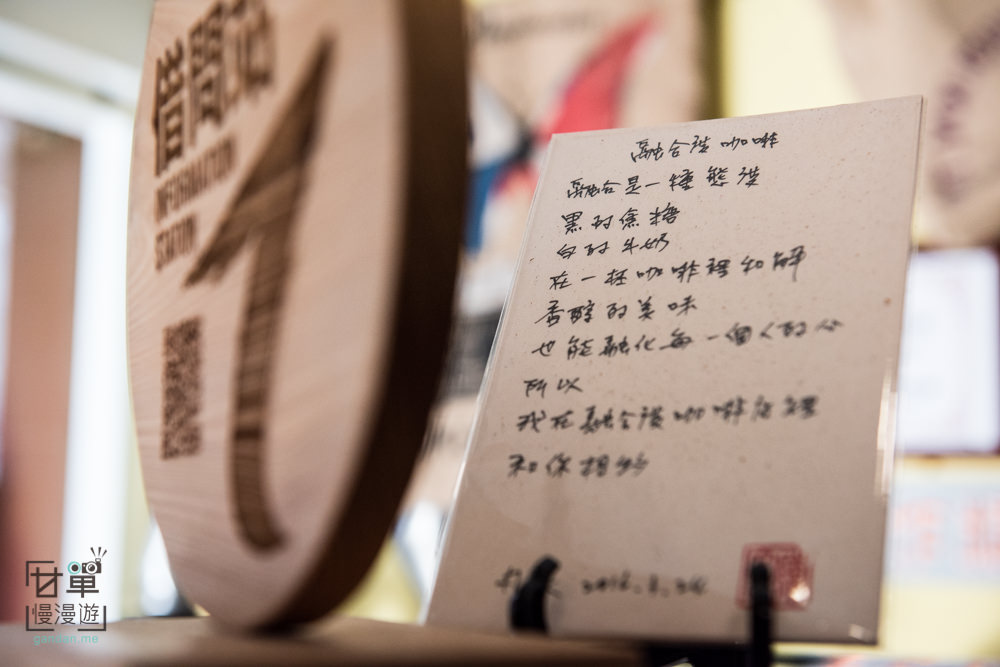 借問站
INFORMATION
STATION
融合裝咖啡
融合是一種態度
黑的焦糖
白的牛奶
在一杯咖啡裡和解
香醇的美味
也能融化每一個人的心
所以
我在融合裝咖啡店裡
和你相約
2016.1.24
甘單
慢漫遊
gardian.me